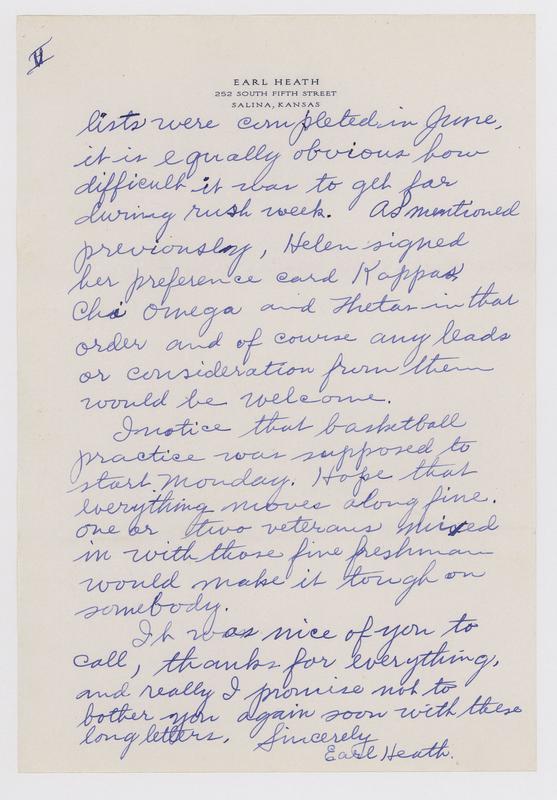 V
EARL HEATH
252 SOUTH FIFTH STREET
SALINA, KANSAS
lists were completed in June,
it is equally obvious how
difficult it was to get far
during rush week. As mentioned
previously, Helen signed
her preference card Kappas,
Chi Omega and Thetas in that
order and of course any leads
or consideration from them
would be welcome.
I notice that basketball
practice was supposed to
start Monday. Hope that
everything moves along fine.
one or two veterans mixed
in with those fine freshman
would make it tough on
somebody.
It was nice of you to
call, thanks for everything,
and really I promise not to
bother you again soon with these
long letters. Sincerely
Earl Heath.